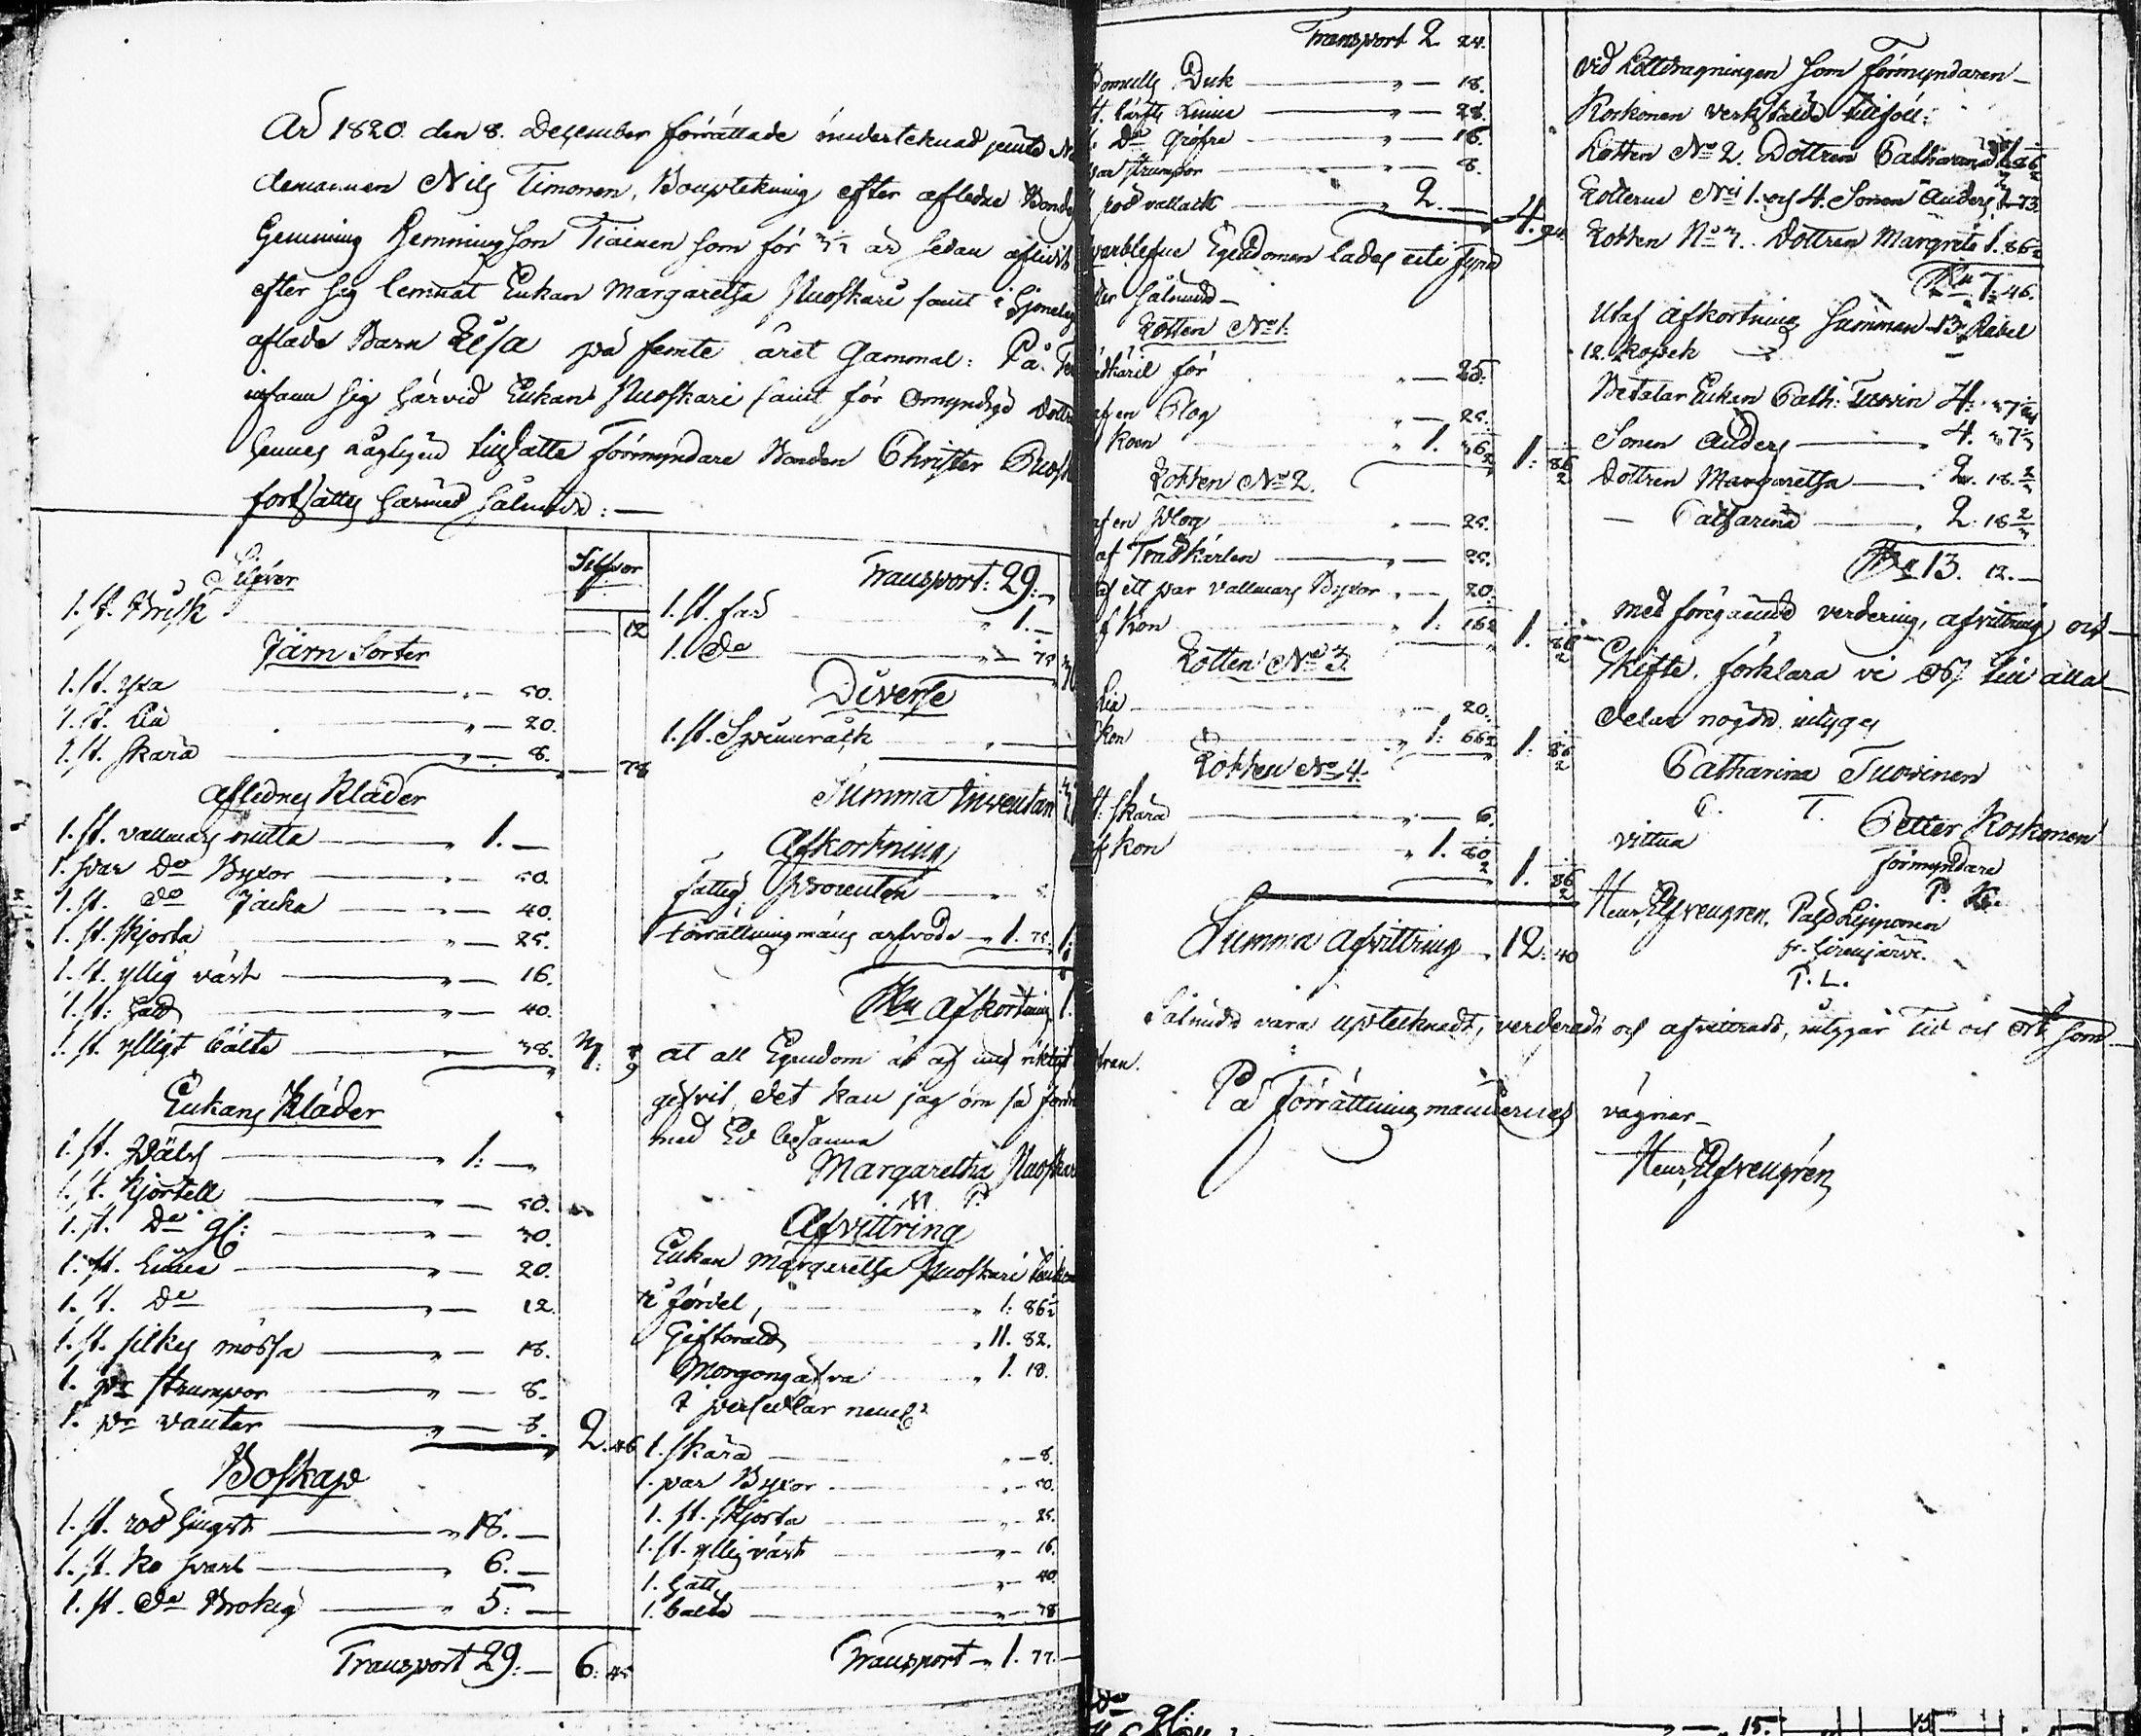 År 1820 den 8. December förrättade undertecknad jemte
demannen Nils Timonen, Bouptekning efter afledne Bonde
Henning Hemmingson Tiainen som för 3½ år sedan aflidit
efter sig lemnat Enkan Margaretha Nuoskari samt i
aflade Barn Elsa på femte året Gammal: På
infann sig härvid Enkan Nuoskari samt för omyndige
hennes lagligen tillsatte Förmyndare Bonden Christer
fortsattes härmed sålunda:—
Silfver
Silfver
1. st. Brisk 12
Järn Sorter
1. st. yxa — 50.
1. st. Lia — 20.
1. st. skära — 8. 78
Aflednes Kläder
1. st. vallmars mutta — 1.—
1. par do Byxor — 50.
1. st. do Jacka — 40.
1. st. skjorta — 25.
1. st. yllig väst — 16.
1. st. hatt — 40.
1. st. ylligt bälte — 38. 3: 9
Enkans Kläder
1. st. Päls — 1:—
1. st. kjortell — 50.
1. st. do gl: — 30.
1. st. Linne — 20.
1. st. do — 12.
1. st. silkes mössa — 18.
1. pr strumpor — 8.
1. pr vantar — 8. 2. 46
Boskap
1. st. röd hingst — 18.—
1. st. ko svart — 6.—
1. st. do Brokig — 5:—
Transport 29:— 6: 45
Transport: 29:—
1. st. får 1.—
1. do — 75
Diverse
1. st. Spinnrååk
Summa Inventarii
Afkortning
fattig Procenten
Förrättningmäns arfvode — 1. 75.
Ru Afkortning 1.
at all Egendom är af mig riktigt
gifvit det kan jag om så
med Ed
Margaretha Nuoskari
M P.
Afvittring
Enkan Margaretha Nuoskari
fördel, 1: 86½
Giftorätt 11. 82.
Morgongåfva 1. 18.
I persedlar neml:
1. skära — 8.
1. par Byxor — 50.
1. st. skjorta — 25.
1. st. yllig väst — 16.
1. hatt — 40
1. bälte — 38
Transport — 1. 77.
Transport 2 24.
Bomulls Duk — 18.
st. lärfts Linne — 28.
do gröfre — 16.
par strumpor — 8.
röd vallack 2.— 4. 94
qvarblefne Egendomen lades uti fyra
sålunda—
Lotten No 1.
för — 25:
af en Plog — 25.
koen 1. 36½ 1: 86½
Lotten No 2.
af en plog — 25.
af Trädkärlen — 25.
af ett par vallmars Byxor — 20.
af kon 1: 16½ 1. 86½
Lotten No 3.
Lia — 20.
kon 1: 66½ 1: 86½
Lotten No 4.
st: skära — 6.
af kon 1. 80½ 1. 86½
Summa Afvittring 12: 40
Sålunda vara uptecknadt, verderadt och afvittradt, intygar Tid och Ort som
På Förrättningsmännernas vägnar—
Henr. Elfvengren
vid Lottdragningen som Förmyndaren—
Koskonen verkstälde tillföll:
Lotten No 2. Dottren Catharina 1. 86½
Lotterne No 1. och 4. Sonen Anders 3. 73.
Lotten No 3. Dottren Margreta 1. 86½
Ru 7: 46.
Utaf Afkortning Summan 13 Rubel
12. kopek
Betalar Enkan Cath: Tuovin 4: 37⅓
Sonen Anders — 4. 37⅓
Dottren Margaretha — 2. 18. ⅔
— Catharina — 2. 18 ⅔
Ru 13. 12.—
Med föregående verdering, afvittring och—
Skifte, förklara vi oss till alla—
delar nögde intyges
Catharina Tuovinen
C. T.
Petter Koskonen
vittna Förmyndare
P. K.
Henr. Elfvengren. Påhl Lipponen
T. L.